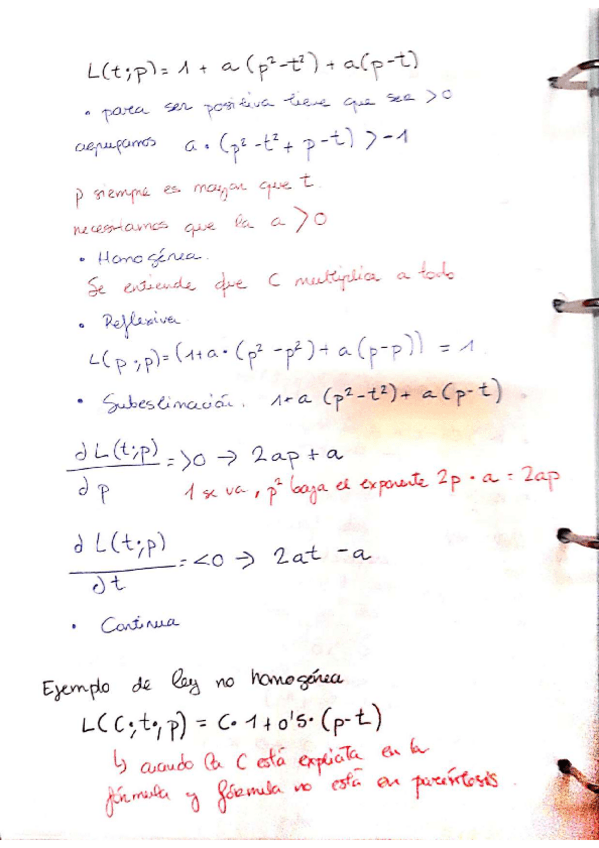 L(t;p) = 1 + a (p²-t²) + a(p-t)
• para ser positiva tiene que ser >0
agrupamos a • (p²-t²+ p-t) > -1
p siempre es mayor que t.
necesitamos que la a >0
• Homogénea.
Se entiende que C multiplica a todo
• Reflexiva
L(p;p)=(1+a•(p²-p²)+ a(p-p)) = 1
• Subestimación. 1+a (p²-t²)+ a(p-t)
∂L(t;p)/∂p = >0 → 2ap + a
1 se va, p² baja el exponente 2p • a = 2ap
∂L(t;p)/∂t = <0 → 2at - a
• Continua
Ejemplo de ley no homogénea
L(C;t;p) = C•1+0'5•(p-t)
↳ cuando la C está explicita en la
fórmula y fórmula no está en paréntesis.